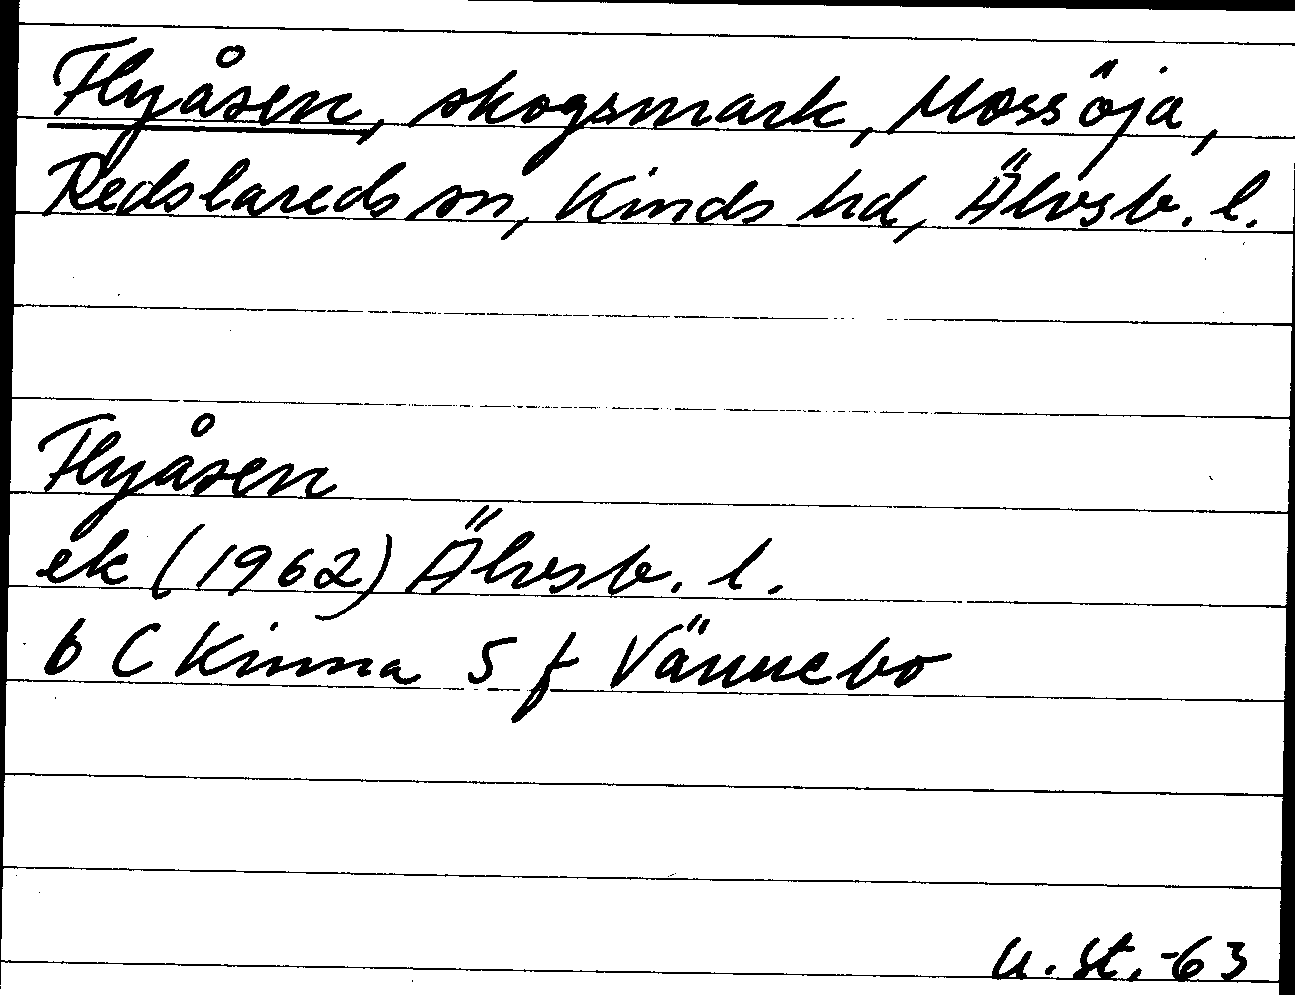 Flyåsen, skogsmark, Mossöja,
Redslareds sn, Kinds hd, Älvsb. l.
Flyåsen
ek (1962) Älvsb. l.
6 C Kinna S f Vännebo
U. St. -63